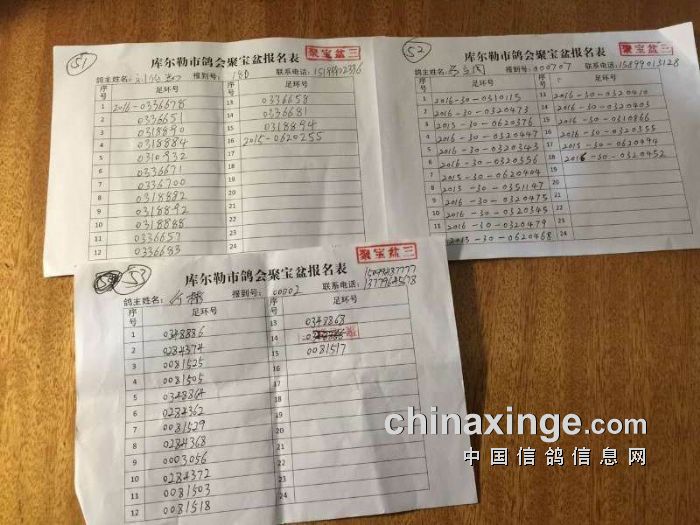 51
库尔勒市鸽会聚宝盆报名表
聚宝盆三
鸽主姓名: 报到号: 180 联系电话:
序号 足环号 序号 足环号
1 2016-0336678 13 0336658
2 0336651 14 0336681
3 0318890 15 0318894
4 0318884 16 2015-0620255
5 0310932 17
6 0336671 18
7 0336700 19
8 0318882 20
9 0318892 21
10 0318888 22
11 0336657 23
12 0336683 24
52
库尔勒市鸽会聚宝盆报名表
聚宝盆三
鸽主姓名: 报到号: 000707 联系电话: 15899013128
序号 足环号 序号 足环号
1 2016-30-0310115 13 2016-30-0320410
2 2016-30-0320473 14 2016-30-0320403
3 2015-30-0620376 15 2016-30-0310866
4 2016-30-0320447 16 2016-30-0320355
5 2016-30-0320343 17 2015-30-0620494
6 2016-30-0320356 18 2016-30-0320452
7 2015-30-0620404 19
8 2015-30-0351147 20
9 2016-30-0320475 21
10 2016-30-0320345 22
11 2016-30-0320479 23
12 2015-30-0620468 24
53
库尔勒市鸽会聚宝盆报名表
聚宝盆三
鸽主姓名: 报到号: 00302 联系电话: 13779645678
序号 足环号 序号 足环号
1 0348886 13 0348868
2 0284374 14
3 0081525 15 0081517
4 0081505 16
5 0348864 17
6 0284362 18
7 0081529 19
8 0284368 20
9 0003056 21
10 0284372 22
11 0081503 23
12 0081518 24
chinaxinge.com
中国信鸽信息网